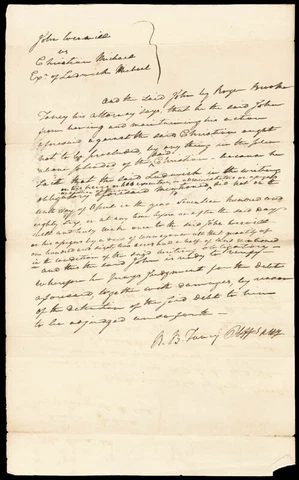 John
vs
Christian Michael
Exr of Ludowick Michael
And the said John by Roger Brooke
Taney his attorney says, that he the said John
from having and maintaining his action
aforesaid against the said Christian ought
not to be precluded, by any thing in the plea
above pleaded of the said Christian - because he
saith that the said Ludowick in the writing
obligatory aforesaid mentioned, did not on the
day of April in the year Seventeen hundred and
eighty six, or at any time before or after the said day
well and truly make over to the said John
by a deed of
one hundred and half of
in the condition of the said writing
and this the said John is ready to verify -
wherefore he prays Judgment for the debt
aforesaid, together with damages, by reason
of the detention of the said debt to him
to be adjudged &c
R. B. Taney Plffs Atty